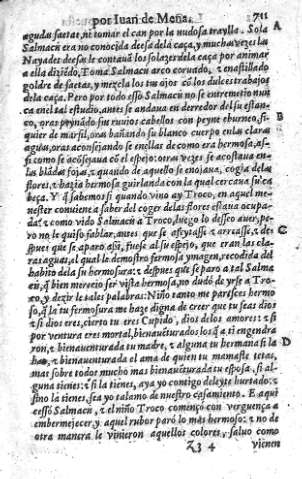 por Iuan de Mena.
agudas saetas, ni tomar el can por la nudosa traylla. Sola
Salmacis era no conocida deesa dela caça, y muchas vezes las
Nayades deesas le contauã los solazes dela caça por animar
a ella diziẽdo, Toma Salmacis arco coruado, z enastillado
goldre de saetas, y mezcla los tus ojos cõ los dulces trabajos
dela caça. Pero por todo esso Salmacis no se entremetio nun
ca en el tal estudio, antes se andaua en derredor del su estan-
co, oras peynãdo sus ruuios cabellos con peyne eburneo, si-
quier de marfil, oras bañando su blanco cuerpo enlas claras
aguas, oras aconsejando se enellas de como era hermosa, as-
si como se acõsejaua cõ el espejo: otras vezes se acostaua en-
las blãdas fojas, z quando de aquello se enojaua, cogia delas
flores, z hazia hermosa guirlanda con la qual cercaua su ca
beça. Y q̃ sabemos si quando vino ay Troco, en aquel me-
nester conuiene a saber del coger delas flores estaua ocupa-
da, z como vido Salmacis a Troco, luego lo desseo auer, pe-
ro no le quiso fablar, antes que se afeytasse z arreasse, z des
spues que se aparo assi, fuese al su espejo, que eran las cla-
ras aguas, al qual la demostro fermosa ymagen, recodida del
habito dela su hermosura: z despues que se paro a tal Salma
cis, q̃ bien merecio ser vista hermosa, no dudó de yrse a Tro-
co, y dezir le tales palabras: Niño tanto me paresces hermo
so, q̃ la tu fermosura me haze digna de creer que tu seas dios
z si dios eres, cierto tu eres Cupido, dios delos amores: z si
por ventura eres mortal, bienauẽturados los q̃ a ti engendra
ron, z bienauenturada tu madre, z alguna tu hermana si la
has, z bienauenturada el ama de quien tu mamaste tetas,
mas sobre todos mucho mas bienauẽturada tu esposa, si al-
guna tienes: z si la tienes, aya yo contigo deleyte hurtado: z
sino la tienes, sea yo talamo de nuestro casamiento. E aqui
cessó Salmacis, z el niño Troco començó con verguença a
embermejecer, y aquel rubor paró lo mas hermoso: z no de
otra manera le vinieron aquellos colores, y saluo como
vienen
B
C
D